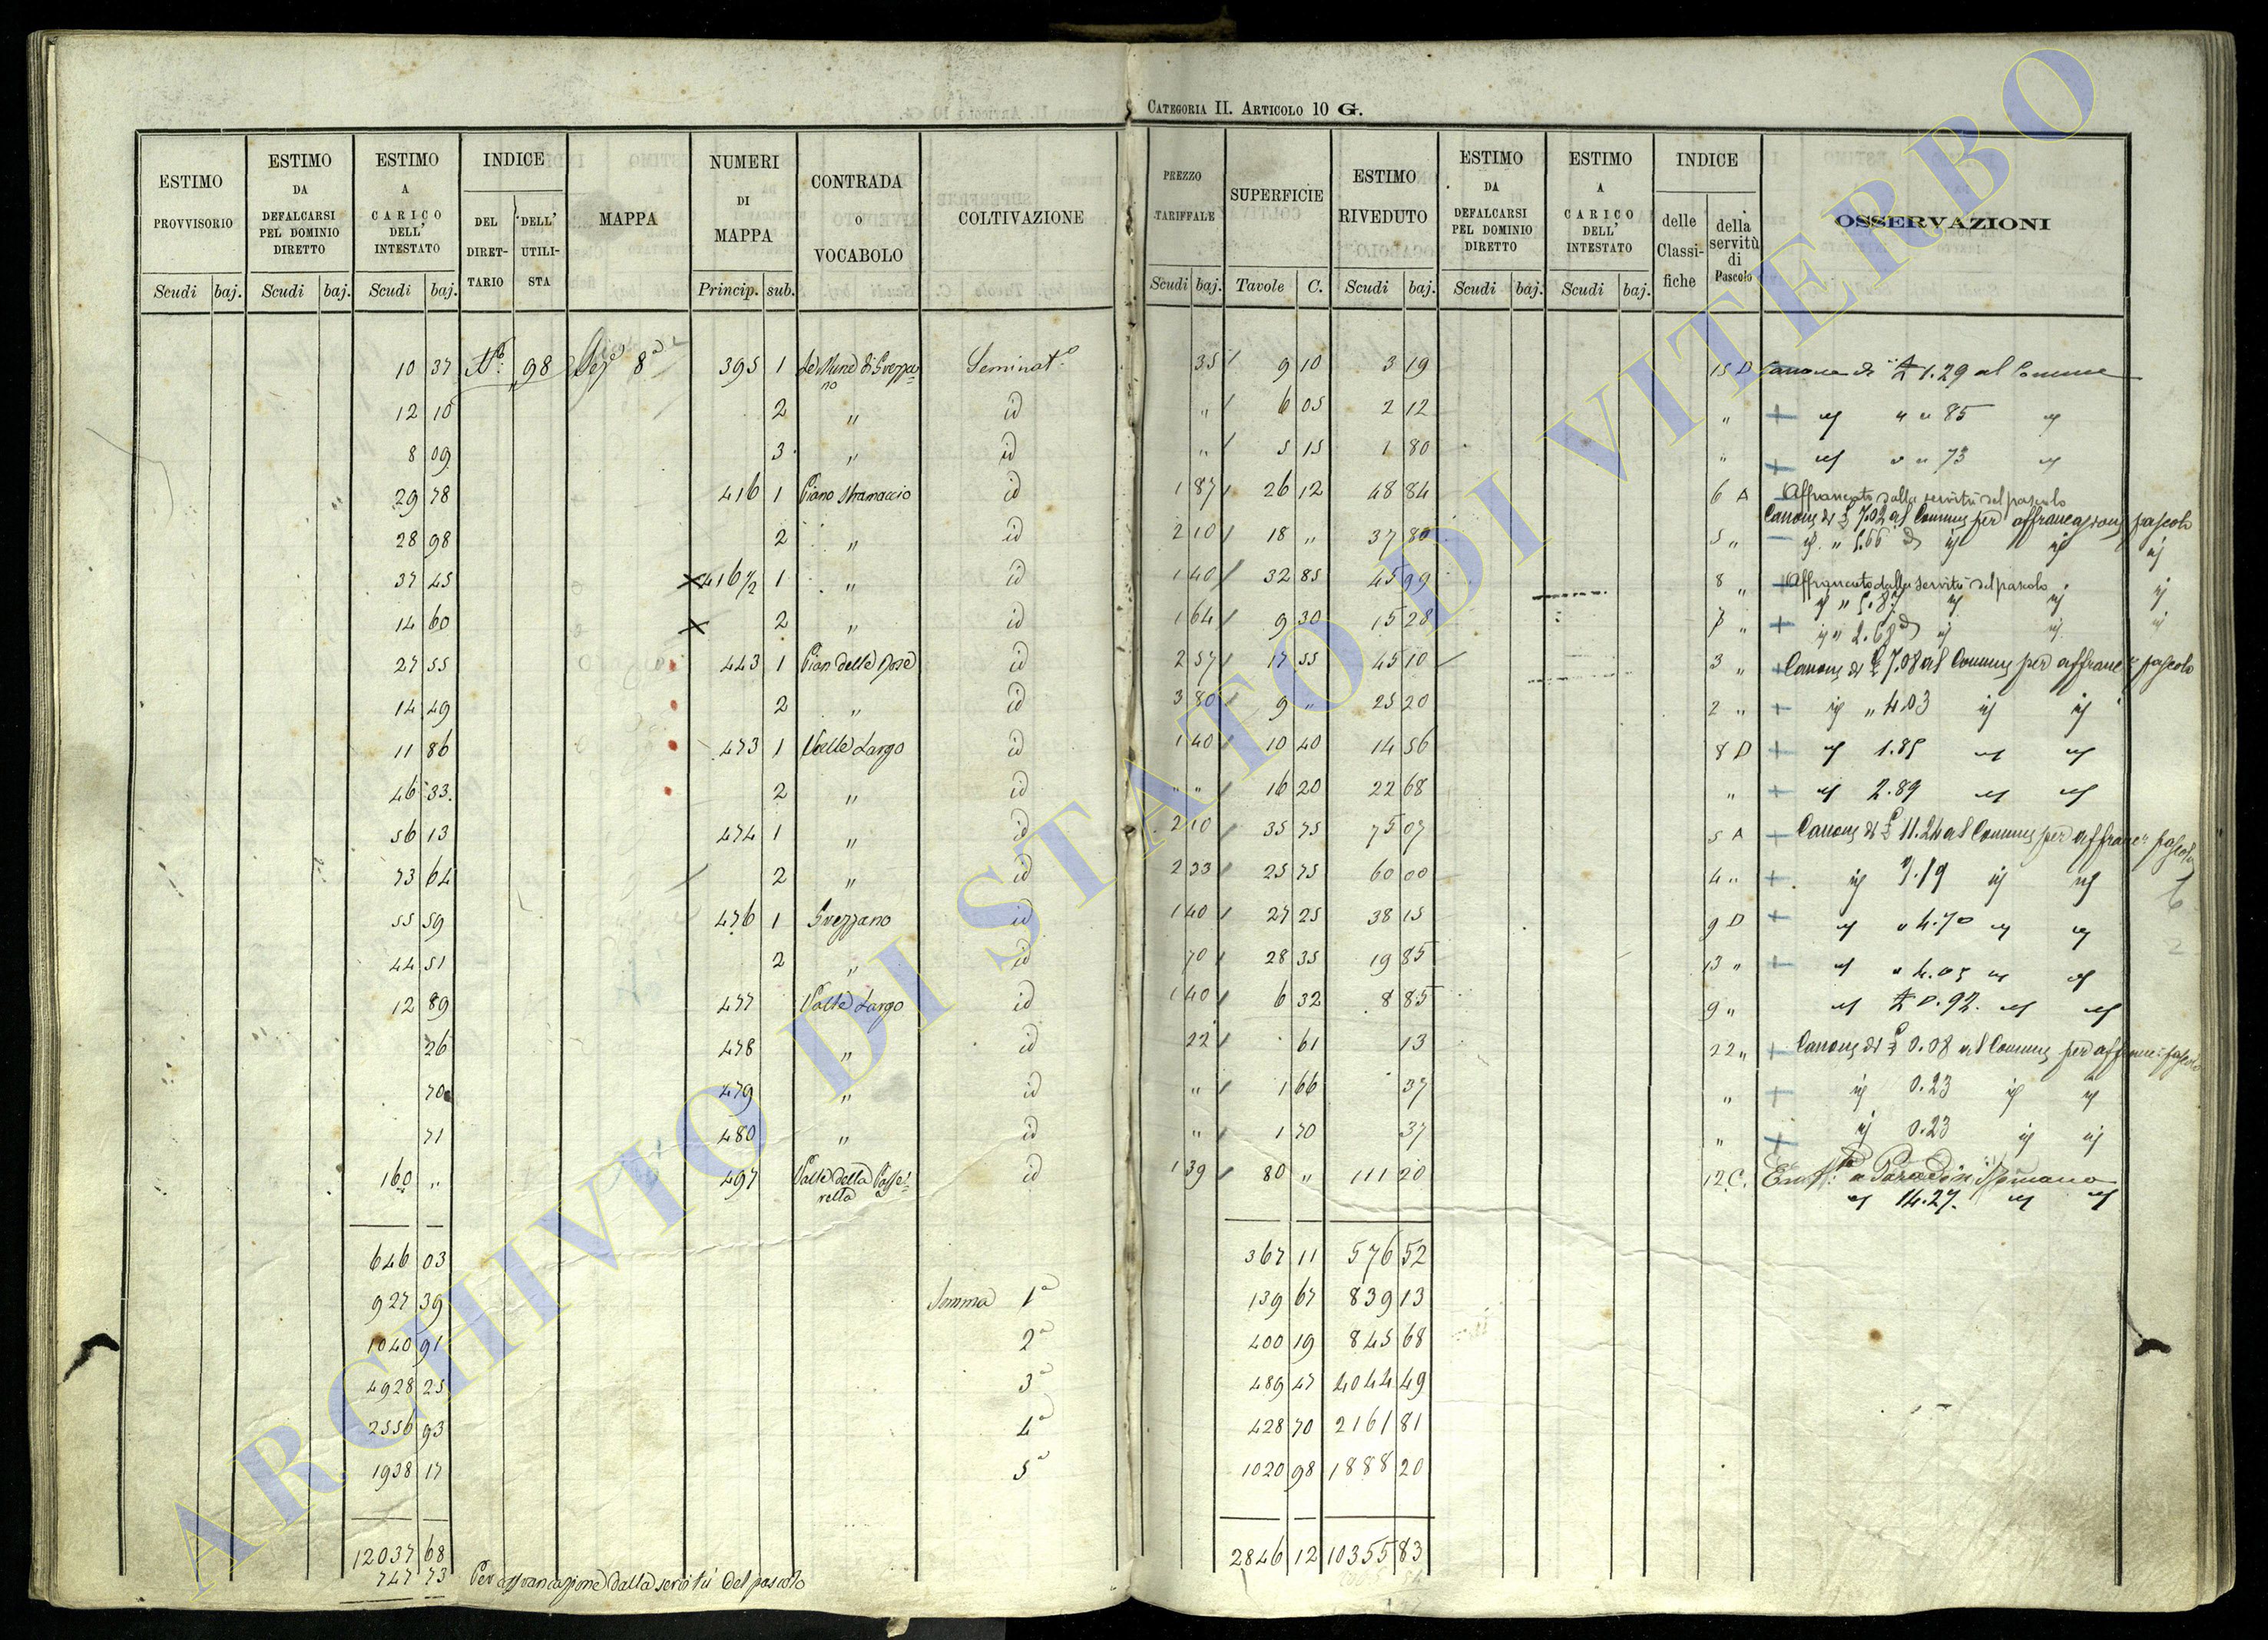 CATEGORIA II. ARTICOLO 10 G.
ESTIMO PROVVISORIO | ESTIMO DA DEFALCARSI PEL DOMINIO DIRETTO | ESTIMO A CARICO DELL' INTESTATO | INDICE DEL DIRETTARIO | DELL' UTILISTA | MAPPA | NUMERI DI MAPPA | CONTRADA O VOCABOLO | COLTIVAZIONE | PREZZO TARIFFALE | SUPERFICIE | ESTIMO RIVEDUTO | ESTIMO DA DEFALCARSI PEL DOMINIO DIRETTO | ESTIMO A CARICO DELL' INTESTATO | INDICE delle Classifiche | della servitù di Pascolo | OSSERVAZIONI
Scudi baj. Scudi baj. Scudi baj. Princip. sub. Scudi baj. Tavole C. Scudi baj. Scudi baj. Scudi baj.
10 37 98 8ª 395 1 Seminat.º 35 9 10 3 19 15 D Canone di £ 1.29 al Comune
12 10 2 " id " 6 05 2 12 " id " " 85 id
8 09 3 " id " 5 15 1 80 " id " " 73 id
29 78 416 1 Piano Stramaccio id 1 87 26 12 48 84 6 A Affrancato dalla servitù del pascolo
Canone di £ 7.02 al Comune per affrancazione pascolo
28 98 2 " id 2 10 18 " 37 80 5 " id " 5.66 id id id
37 45 416 1/2 1 " id 1 40 32 85 45 99 8 " Affrancato dalla servitù del pascolo
id " 5.87 id id id
14 60 2 " id 1 64 9 30 15 28 7 " id " 2.68 id id id
27 55 443 1 Pian delle Nose id 2 57 17 55 45 10 3 " Canone di £ 7.08 al Comune per affranc. pascolo
14 49 2 " id 3 80 9 " 25 20 2 " id " 4.03 id id
11 86 473 1 Valle Largo id 1 40 10 40 14 56 8 D id 1.85 id id
46 33 2 " id " " 16 20 22 68 " id 2.89 id id
56 13 474 1 " id 2 10 35 75 75 07 5 A Canone di £ 11.24 al Comune per affranc. pascolo
73 64 2 " id 2 33 25 75 60 00 4 " id 9.19 id id
55 59 476 1 Svezzano id 1 40 27 25 38 15 9 D id " 4.70 id id
44 51 2 " id 70 28 35 19 85 13 " id " 4.05 id id
12 89 477 Valle Largo id 1 40 6 32 8 85 9 " id £ 0.92 id id
26 478 " id 22 61 13 22 " Canone di £ 0.08 al Comune per affranc. pascolo
70 479 " id " 1 66 37 " id 0.23 id id
71 480 " id " 1 70 37 " id 0.23 id id
160 " 497 Valle della id 1 39 80 " 111 20 12 C.
id 14.27. id id
646 03 367 11 576 52
927 39 Somma 1ª 139 67 839 13
1040 91 2ª 400 19 845 68
4928 25 3ª 489 47 4044 49
2556 93 4ª 428 70 2161 81
1938 17 5ª 1020 98 1888 20
12037 68 2846 12 10355 83
747 73 Per affrancazione dalla servitù del pascolo
ARCHIVIO DI STATO DI VITERBO